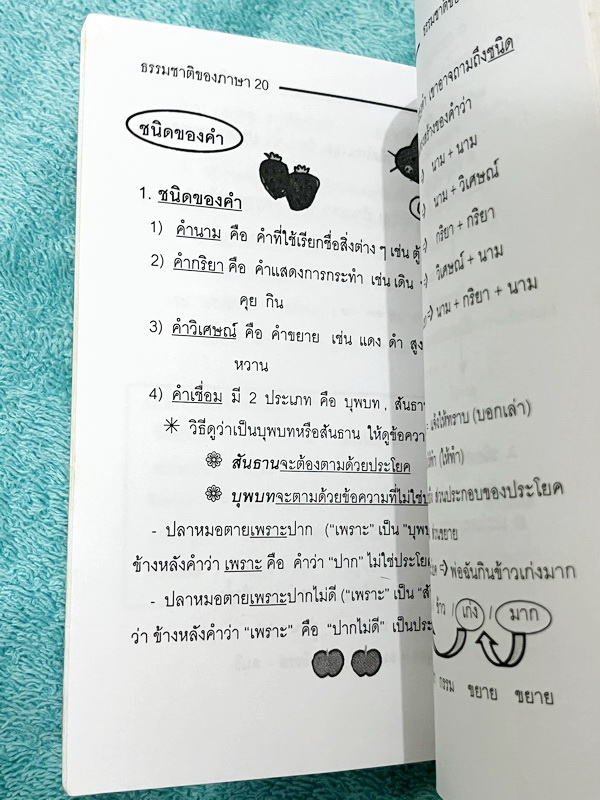 ธรรมชาติของภาษา 20
ชนิดของคำ
1. ชนิดของคำ
1) คำนาม คือ คำที่ใช้เรียกชื่อสิ่งต่าง ๆ เช่น ตู้
2) คำกริยา คือ คำแสดงการกระทำ เช่น เดิน
คุย กิน
3) คำวิเศษณ์ คือ คำขยาย เช่น แดง ดำ สูง
หวาน
4) คำเชื่อม มี 2 ประเภท คือ บุพบท , สันธาน
✳ วิธีดูว่าเป็นบุพบทหรือสันธาน ให้ดูข้อความ
สันธานจะต้องตามด้วยประโยค
บุพบทจะตามด้วยข้อความที่ไม่ใช่
- ปลาหมอตายเพราะปาก ("เพราะ" เป็น "บุพบ
ข้างหลังคำว่า เพราะ คือ คำว่า "ปาก" ไม่ใช่ประโยค
- ปลาหมอตายเพราะปากไม่ดี ("เพราะ" เป็น "สั
ว่า ข้างหลังคำว่า "เพราะ" คือ "ปากไม่ดี" เป็นประ
เขาอาจถามถึงชนิด
ของคำว่า
นาม + นาม
นาม + วิเศษณ์
กริยา + กริยา
วิเศษณ์ + นาม
⇒ นาม + กริยา + นาม
แจ้งให้ทราบ (บอกเล่า)
(ให้ทำ)
ส่วนประกอบของประโยค
ส่วนขยาย
⇒ พ่อฉันกินข้าวเก่งมาก
ข้าว / เก่ง / มาก
กรรม ขยาย ขยาย